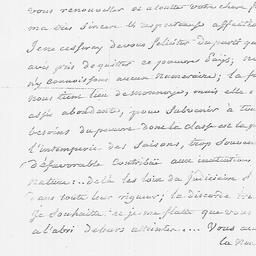 vous renouveller et ajouter votre chere f
ma très sincere et respectueuse affection
Je ne cesseray de vous feliciter du parti qu
avis pris de quitter ce pauvre Païs; n
n'y connoissons aucun numeraire; la f
nous tient lieu de monnoye, mais elle n
assés abondante, pour subvenir à tou
besoins du pauvre dont la classe est la p
l'intemperie des saisons, trop souven
défavorable contribue aux
nature: .. de là les loix du Judiciaire s
dans toute leur rigueur; la discorde
Je souhaitte et je me flatte que vous
a l'abri de leurs atteintes .... Vous au
la nou